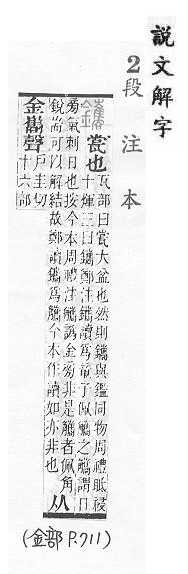 說文解字
2段注本
鑴 瓽也 瓦部曰瓽大盆也然則鑴與鑑同物周禮眡祲
十煇三曰鑴鄭注鑴讀爲童子佩觿之觿謂日
㫄氣刺日也按今本周禮注觿譌金㫄非是觿者佩角
銳耑可以解結故鄭讀鑴爲觿今本作讀如亦非也 从
金巂聲 戶圭切
十六部
(金部 P.711)